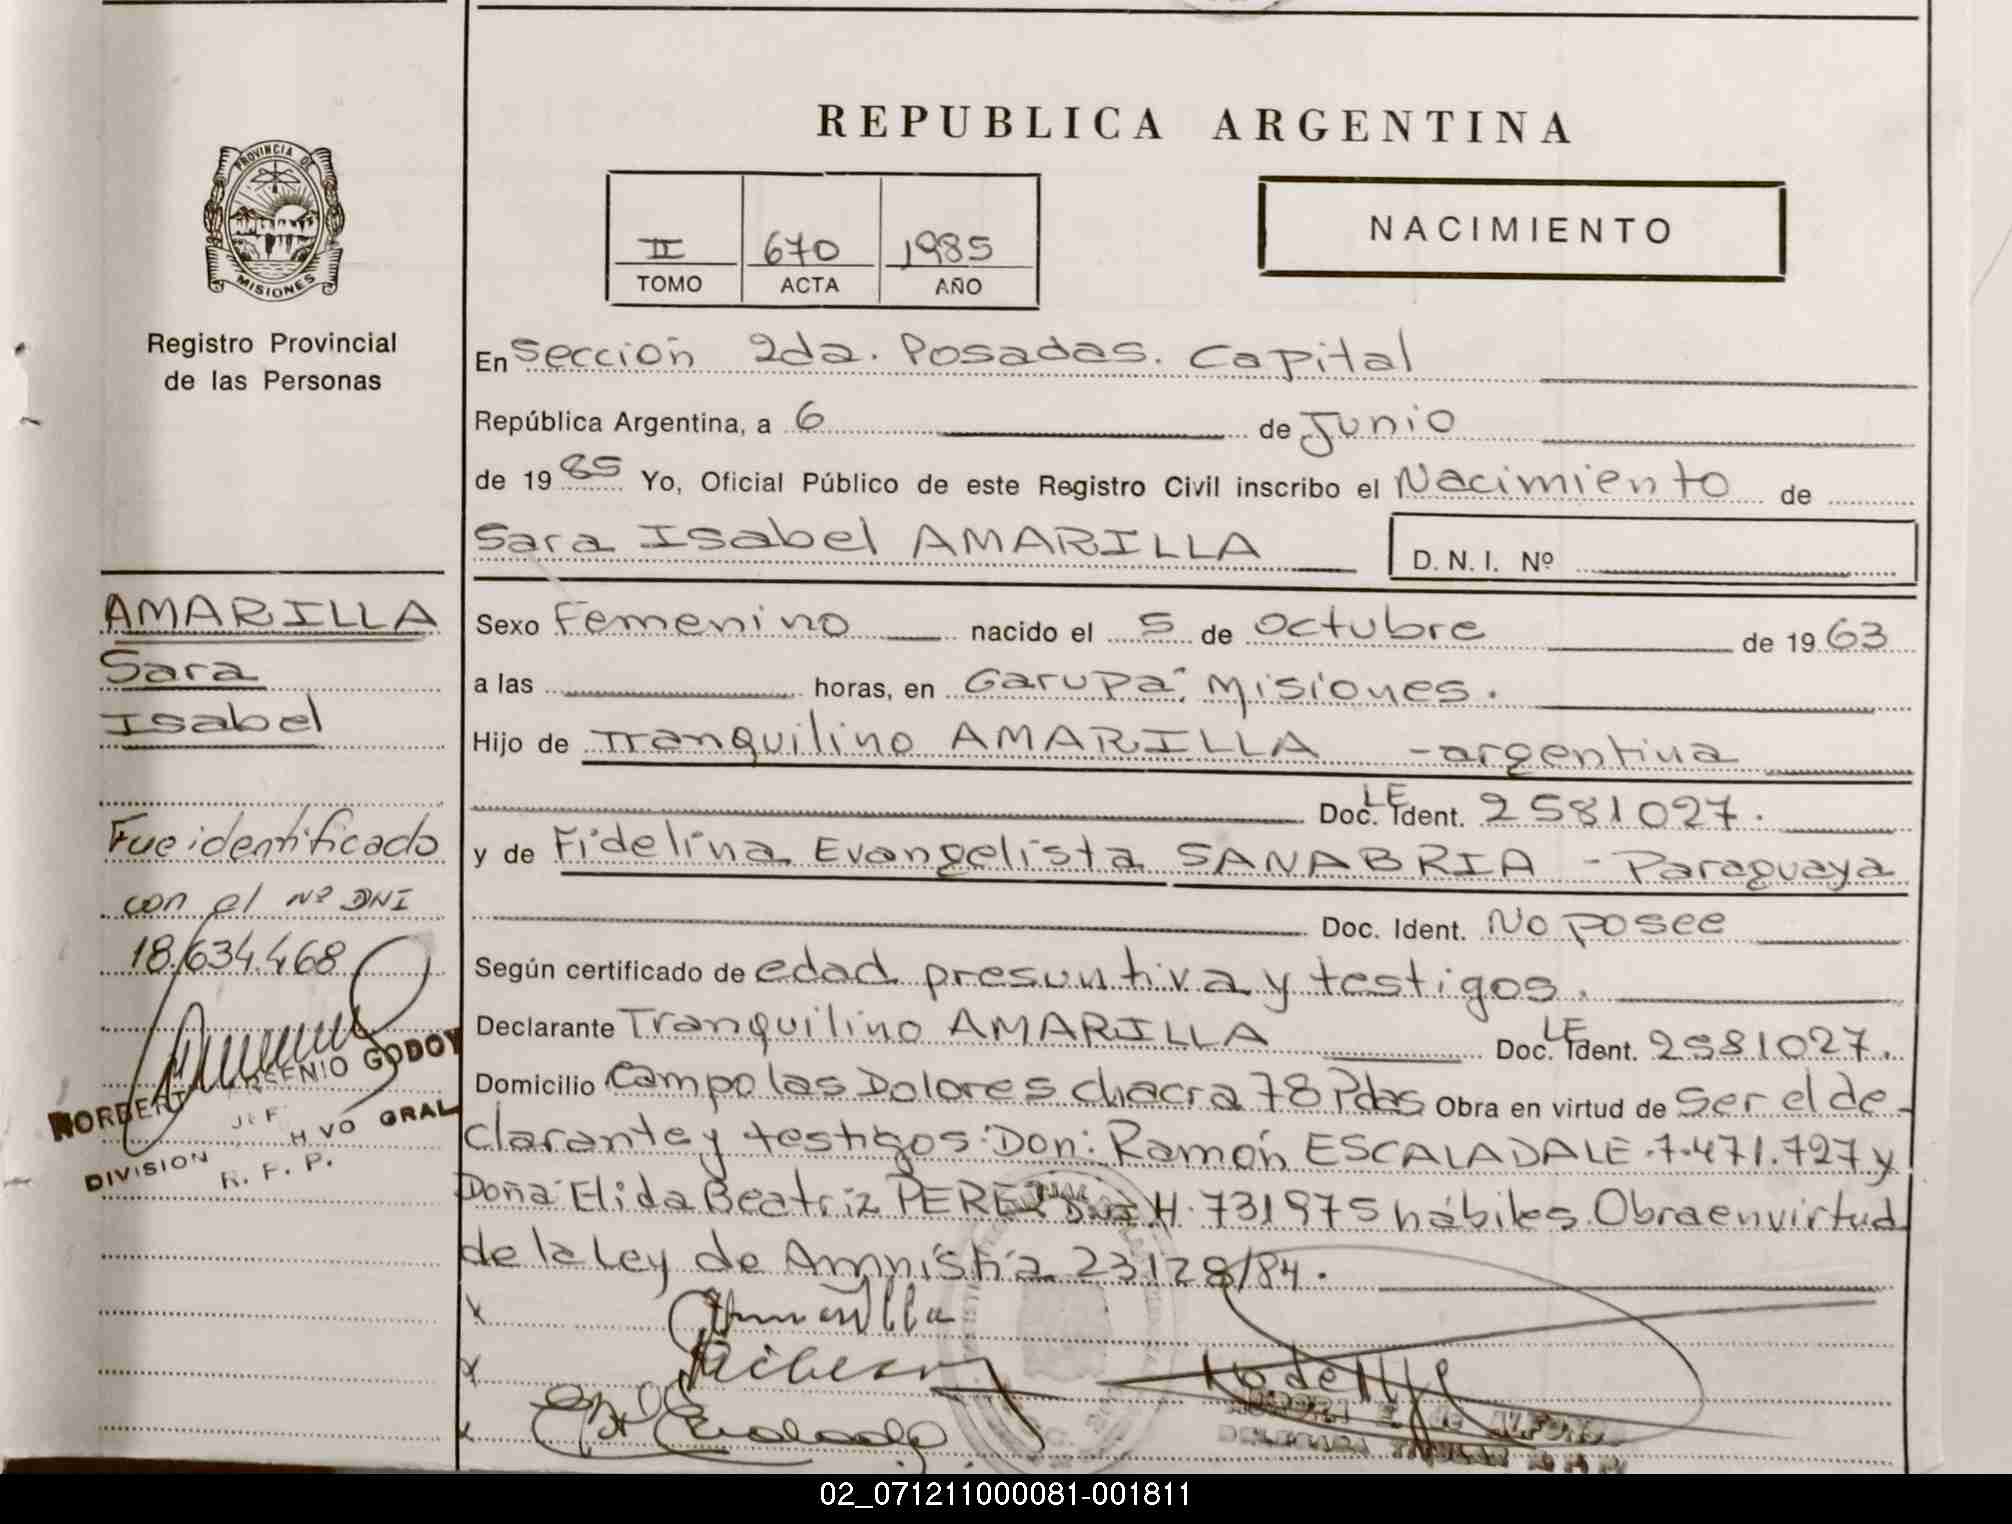 REPUBLICA ARGENTINA
PROVINCIA DE
MISIONES
Registro Provincial
de las Personas
II 670 1985
TOMO ACTA AÑO
NACIMIENTO
En Sección 2da. Posadas. Capital
República Argentina, a 6 de Junio
de 1985 Yo, Oficial Público de este Registro Civil inscribo el Nacimiento de
Sara Isabel AMARILLA D. N. I. Nº
AMARILLA
Sara
Isabel
Fue identificado
con el Nº DNI
18.634.468
GODOY
DIVISION
R. P. P.
Sexo Femenino nacido el 5 de octubre de 1963
a las horas, en Garupá. Misiones.
Hijo de Tranquilino AMARILLA - argentina
Doc. LE Ident. 2581027.
y de Fidelina Evangelista SANABRIA - Paraguaya
Doc. Ident. No posee
Según certificado de edad presuntiva y testigos.
Declarante Tranquilino AMARILLA Doc. LE Ident. 2581027.
Domicilio Campo las Dolores chacra 78 Pdas Obra en virtud de Ser el de-
clarante y testigos: Don: Ramón ESCALADA LE. 7.471.727 y
Doña Elida Beatriz PEREZ 731975 hábiles. Obra en virtud
de la Ley de Amnistía 23128/84.
Amarilla
02_071211000081-001811